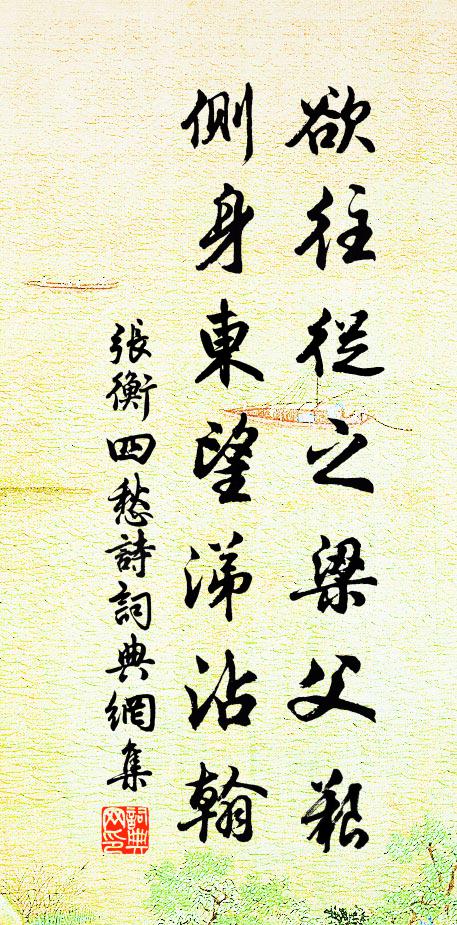 欲往從之梁父艱
側身東望涕沾翰
張衡四愁詩詞典網集
詞典網印